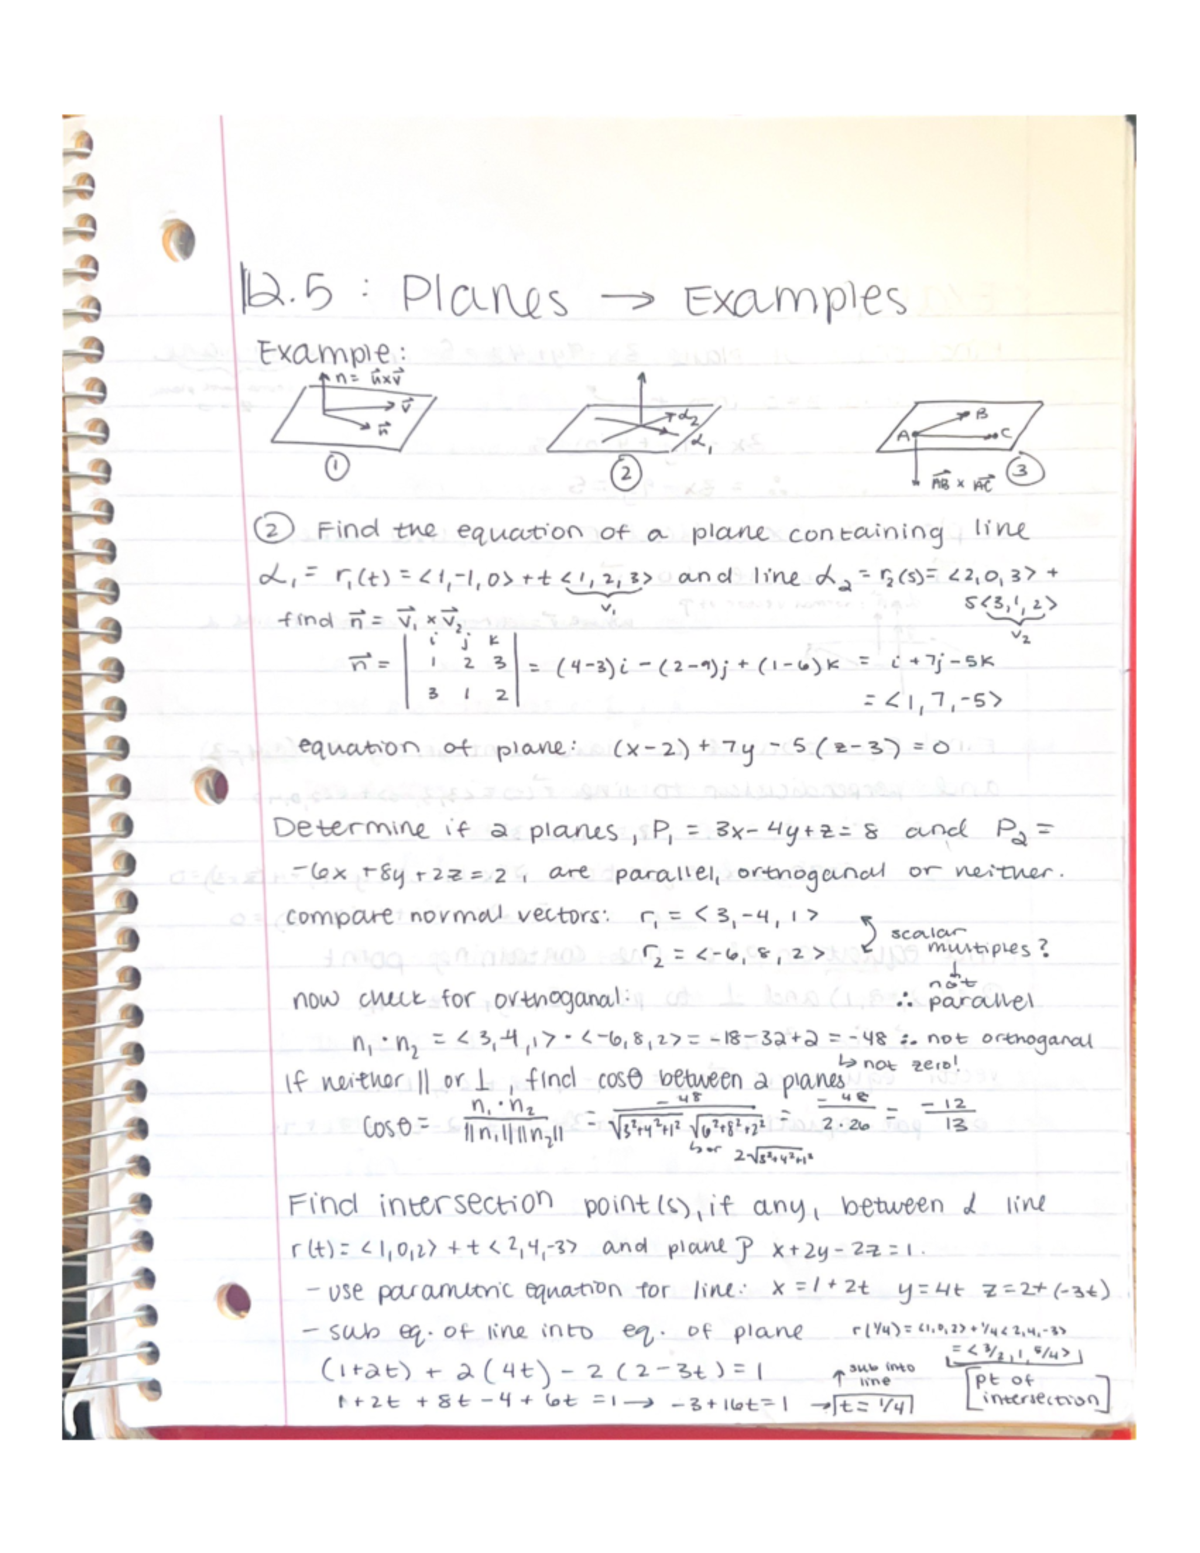 12.5 : Planes → Examples
Example:
n = u⃗×v⃗
v⃗
u⃗
①
α₂
α₁
②
A
B
C
AB × AC
③
② Find the equation of a plane containing line
α₁ = r₁(t) = <1,-1,0> + t <1,2,3> and line α₂ = r₂(s) = <2,0,3> +
s<3,1,2>
v₁
v₂
find n⃗ = v⃗₁ × v⃗₂
n⃗ = | i j k | = (4-3)i - (2-9)j + (1-6)k = i + 7j - 5k
1 2 3
3 1 2
= <1,7,-5>
equation of plane: (x-2) + 7y - 5(z-3) = 0
Determine if 2 planes, P₁ = 3x - 4y + z = 8 and P₂ =
-6x + 8y + 2z = 2, are parallel, orthoganal or neither.
compare normal vectors: r₁ = <3,-4,1>
r₂ = <-6,8,2>
scalar
multiples?
↓
not
∴ parallel
now check for orthoganal:
n₁ · n₂ = <3,-4,1> · <-6,8,2> = -18-32+2 = -48 ∴ not orthoganal
↳ not zero!
If neither || or ⊥, find cosθ between 2 planes
cosθ = n₁·n₂ / ||n₁|| ||n₂|| = -48 / √3²+4²+1² √6²+8²+2² = -48 / 2·26 = -12 / 13
↳ or 2√3²+4²+1²
Find intersection point(s), if any, between L line
r(t) = <1,0,2> + t<2,4,-3> and plane P x+2y-2z=1.
- use parametric equation for line: x = 1+2t y = 4t z = 2+(-3t)
- sub eq. of line into eq. of plane
r(1/4) = <1,0,2> + 1/4<2,4,-3>
= <3/2, 1, 5/4>
(1+2t) + 2(4t) - 2(2-3t) = 1
↑ sub into
line
pt of
intersection
1+2t + 8t - 4 + 6t = 1 → -3+16t=1 → t = 1/4